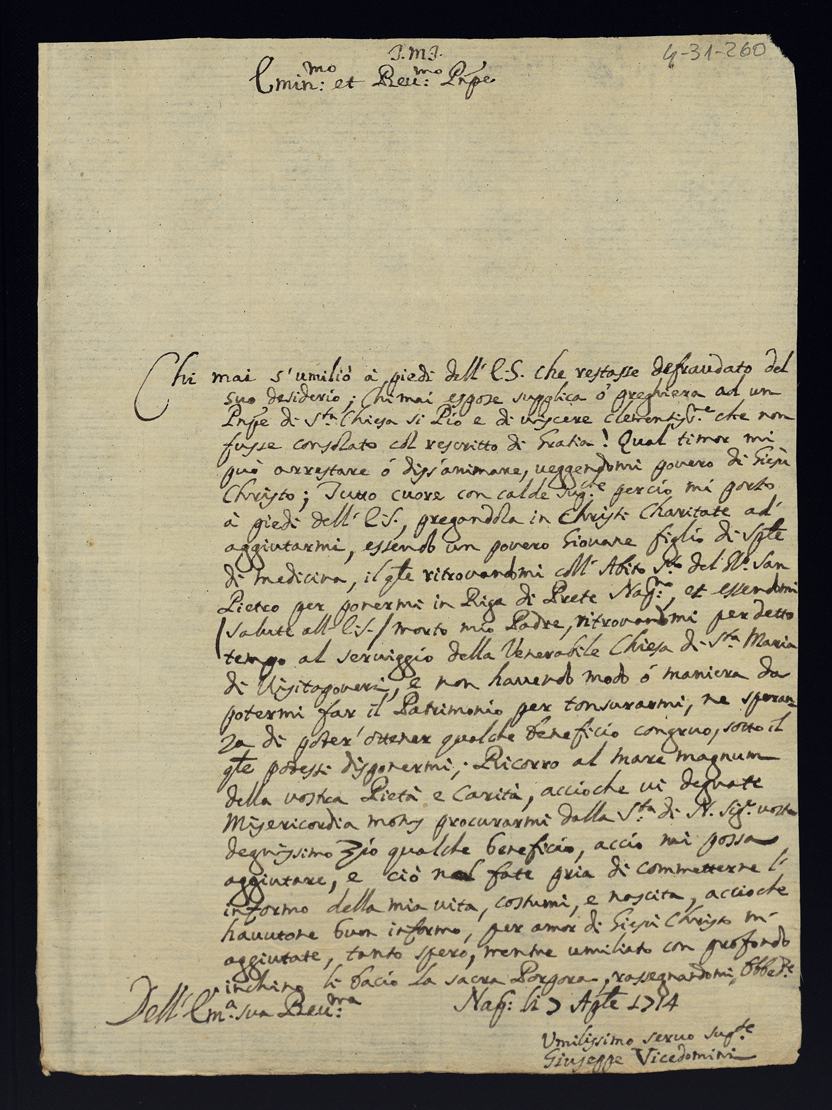 4-31-260
J.M.J.
Emin:mo et Reu:mo Pnpe
Chi mai s'umiliò à piedi dell'E.S. che restasse defraudato del
suo desiderio; Chi mai espose supplica ò preghiera ad un
Pnpe di Sta Chiesa si Pio e di viscere clementiss:e che non
fusse consolato col rescritto di Gratia! Qual timor mi
può arrestare ò diss'animare, veggendomi povero di Giesù
Christo; Tutto cuore con calde sup:che perciò mi porto
à piedi dell'E.S., pregandola in Christi Charitate ad'
aggiutarmi, essendo un povero Giovane figlio di
di medicina, il qle ritrovandomi coll'Abito Sto del San
Pietro per ponermi in Riga di Prete Nap:no, et essendomi
(salute all'E.S./ morto mio Padre, ritrovandomi per detto
tempo al serviggio della Venerabile Chiesa di Sta Maria
di Visitapoveri, e non havendo modo ò maniera da
potermi far il Patrimonio per tonsurarmi, ne speran
za di poter'ottener qualche beneficio congruo, sotto il
qle potessi disponermi; Ricorro al mare magnum
della vostra Pietà e Carità, acciòche vi degnate
Misericordia procurarmi dalla Sta di N. Sig:r vostro
degnissimo Zio qualche beneficio, acciò mi possa
aggiutare, e ciò nel fate pria di commetterne l'
informo della mia vita, costumi, e nascita, acciòche
havutone buon informo, per amor di Giesù Christo m'
aggiutate, tanto spero, mentre umiliato con profondo
inchino li bacio la sacra Porpora, rassegnandomi
Dell'Em:a sua Reu:ma Nap: li 7 Aple 1714
Umilissimo servo supte
Giuseppe Vicedomini